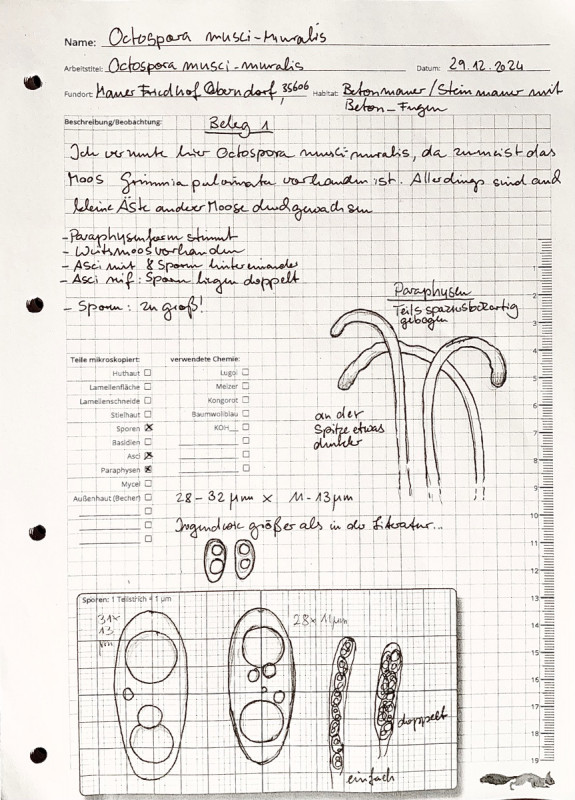 Name: Octospora musci-muralis
Arbeitstitel: Octospora musci-muralis Datum: 29.12.2024
Fundort: Mauer Friedhof Oberndorf, 35606 Habitat: Betonmauer/Steinmauer mit
Beton-Fugen
Beschreibung/Beobachtung: Beleg 1
Ich vermute hier Octospora musci-muralis, da zumeist das
Moos Grimmia pulvinata vorhanden ist. Allerdings sind auch
kleine Äste anderer Moose durchgewachsen
- Paraphysenform stimmt
- Wirtsmoos vorhanden
- Asci mit 8 Sporen hintereinander
- Asci reif: Sporen liegen doppelt
- Sporen: zu groß!
Paraphysen
Teils spazierstockartig
gebogen
an der
Spitze etwas
dunkler
Teile mikroskopiert: verwendete Chemie:
Huthaut Lugol
Lamellenfläche Melzer
Lamellenschneide Kongorot
Stielhaut Baumwollblau
Sporen x KOH__
Basidien
Asci x
Paraphysen x
Mycel
Außenhaut (Becher)
28-32 µm x 11-13µm
Irgendwie größer als in der Literatur...
Sporen: 1 Teilstrich ≙ 1 µm
31x
13
µm
28x11µm
doppelt
einfach
1
2
3
4
5
6
7
8
9
10
11
12
13
14
15
16
17
18
19